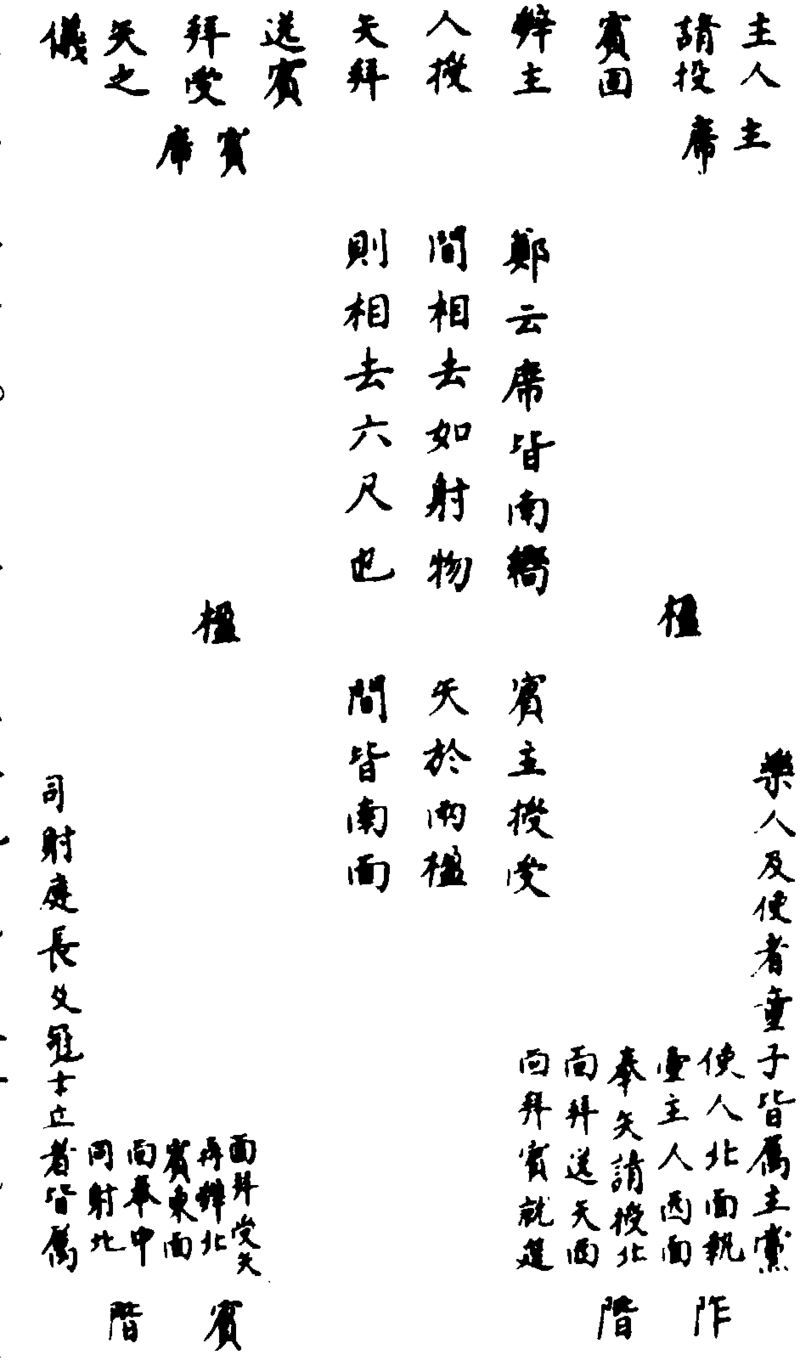 主人
請投
賓固
辤主
人授
矢拜
送賓
拜受
矢之
儀
主
席
賓
席
鄭云席皆南嚮
間相去如射物
則相去六尺也
楹
楹
賓主授受
矢於兩楹
間皆南面
樂人及使者童子皆屬主黨
使人北面執
壷主人西面
奉矢請投北
面拜送矢西
向拜賓就筵
阼
階
面拜受矢
再辤北
賓東面
面奉中
司射北
司射庭長及冠士立者皆屬
賓
階